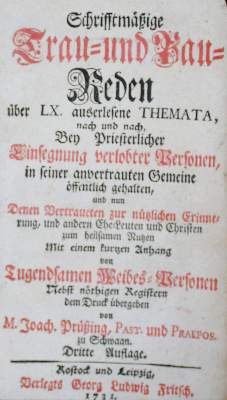 Schrifftmäßige
Trau- und Bau-
Reden
über LX. außerlesene THEMATA,
nach und nach,
Bey Priesterlicher
Einsegnung verlobter Personen,
in seiner anvertrauten Gemeine
öffentlich gehalten,
und nun
Denen Vertraueten zur nützlichen Erinne-
rung, und andern Ehe-Leuten und Christen
zum heilsamen Nutzen
Mit einem kurtzen Anhang
von
Tugendsamen Weibes-Personen
Nebst nöthigen Registern
dem Druck übergeben
von
M. Joach. Prüßing, PAST. und PRAEPOS.
zu Schwaan.
Dritte Auflage.
Rostock und Leipzig,
Verlegts Georg Ludwig Fritsch.